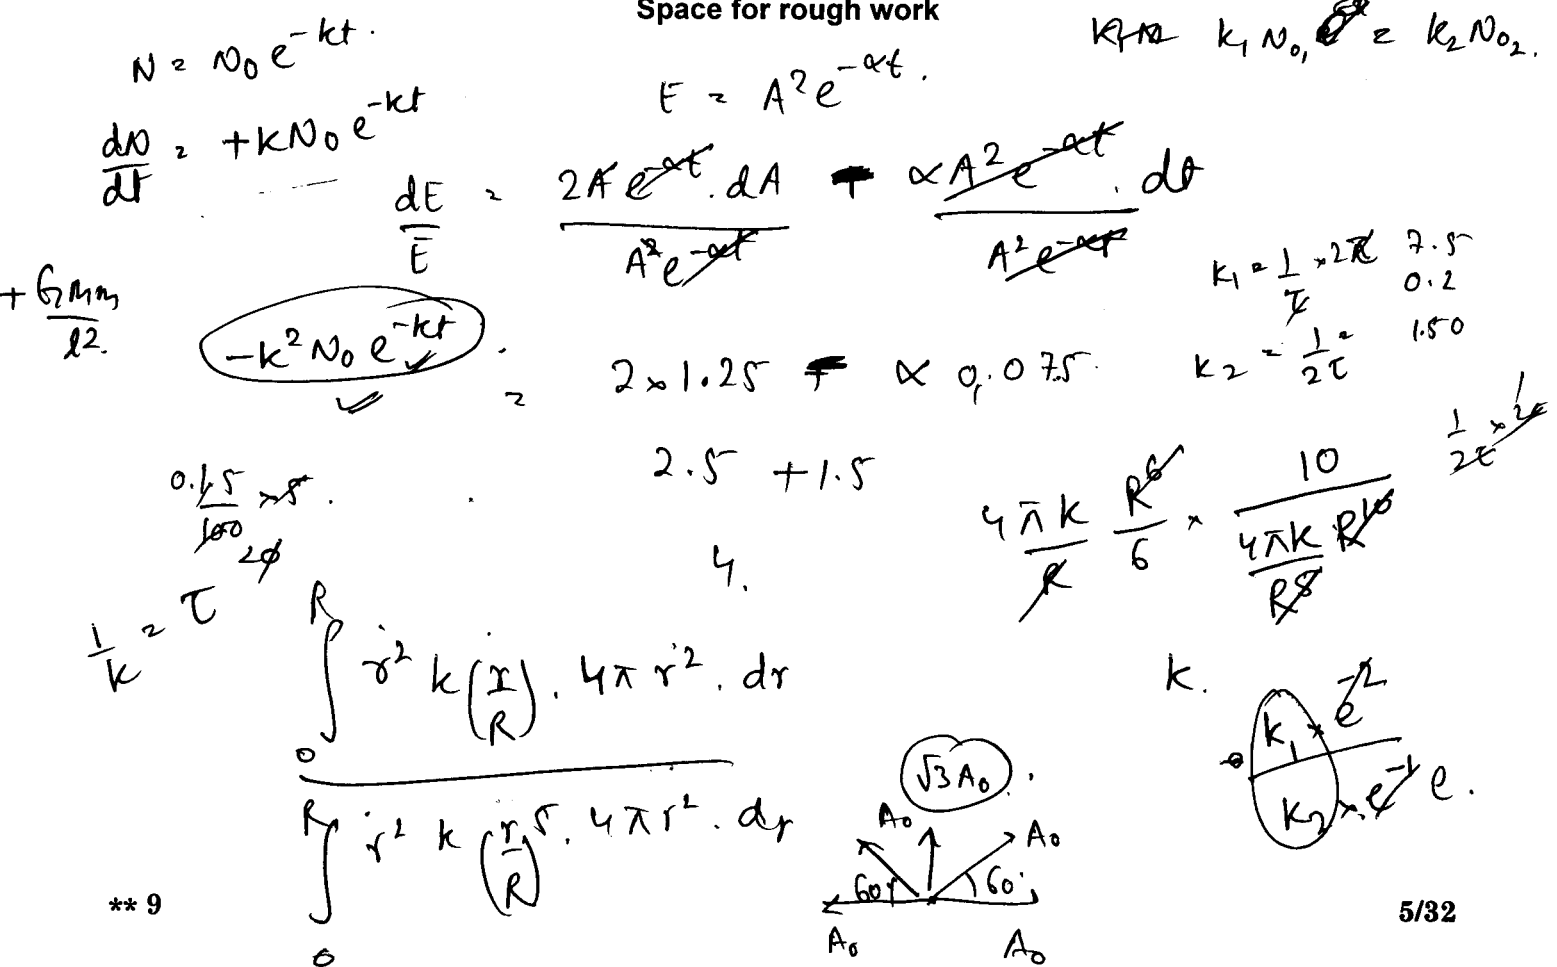 Space for rough work
N = N₀ e^{-kt}.
E = A² e^{-αt}.
k₁ N₀₁ = k₂ N₀₂.
dN/dt = +kN₀ e^{-kt}
dE/E = 2A e^{-αt} . dA / A² e^{-αt} + αA² e^{-αt} . dt / A² e^{-αt}
+ GMm / l².
-k² N₀ e^{-kt}
k₁ = 1/τ × 2τ
7.5
0.2
1.50
= 2 × 1.25 + α 0.075.
k₂ = 1/2τ =
1/2τ × 2τ
0.15/100 × 5.
20
2.5 + 1.5
4πk/R R⁶/6 × 10 / 4πk/R⁵ R¹⁰
4.
1/k = τ
∫₀ᴿ r² k (r/R) . 4π r² . dr
∫₀ᴿ r² k (r/R)⁵ . 4π r² . dr
k.
k₁ × e⁻² / k₂ × e⁻¹ e.
√3 A₀ .
A₀
A₀
60°
60°
A₀
A₀
** 9
5/32